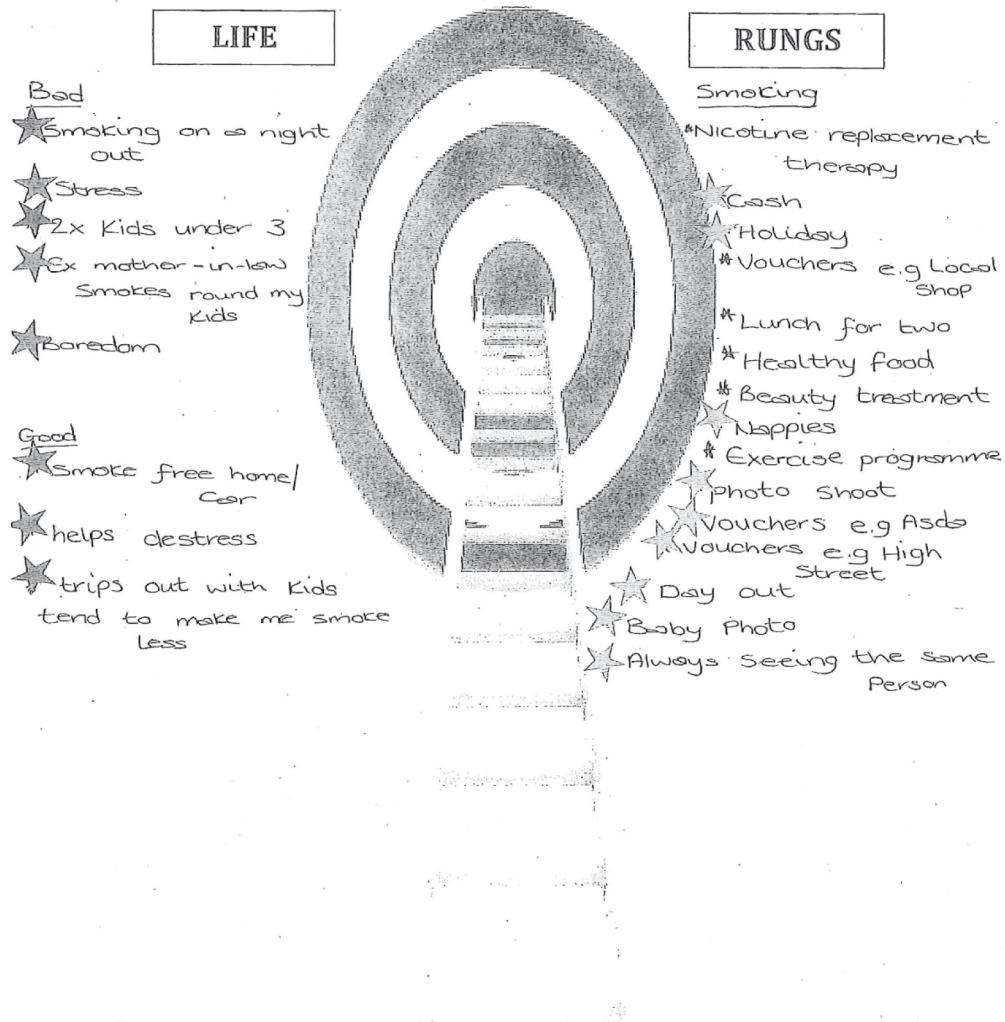 LIFE
Bad
Smoking on a night
out
Stress
2x Kids under 3
Ex mother-in-law
Smokes round my
Kids
Boredom
Good
Smoke free home/
Car
helps destress
trips out with Kids
tend to make me smoke
Less
RUNGS
Smoking
*Nicotine replacement
therapy
Cash
Holiday
*Vouchers e.g Local
Shop
*Lunch for two
*Healthy food
*Beauty treatment
Nappies
*Exercise programme
Photo Shoot
Vouchers e.g Asda
Vouchers e.g High
Street
Day out
Baby Photo
Always Seeing the same
Person